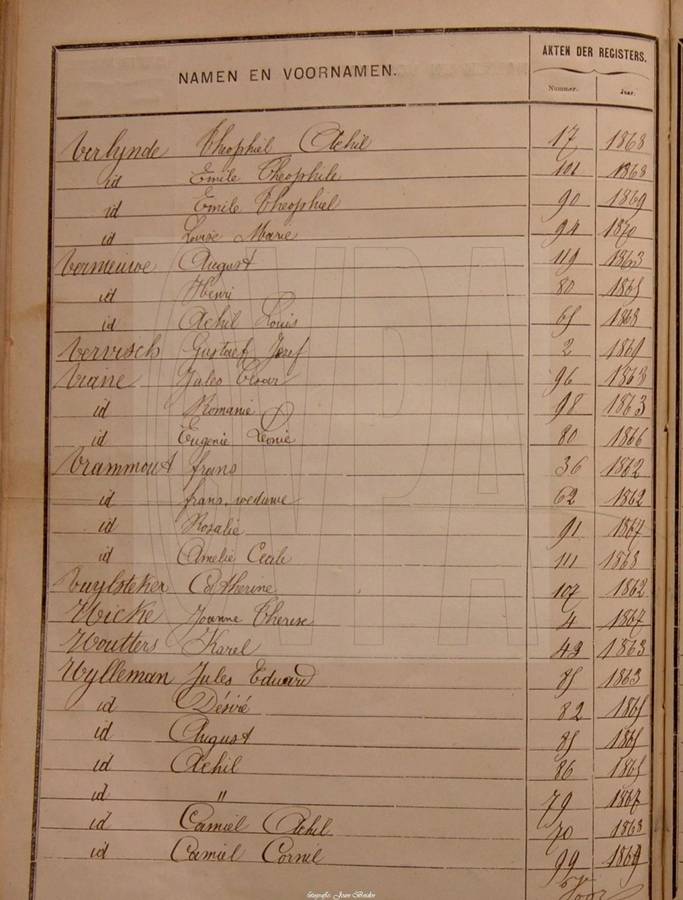 NAMEN EN VOORNAMEN.
AKTEN DER REGISTERS.
Nummer. Jaar.
Verlynde Theophiel Achil 17 1868
id Emile Theophile 101 1868
id Emile Theophiel 90 1869
id Louise Marie 94 1870
Vermeuwe August 119 1863
id Henri 80 1865
id Achil Louis 65 1868
Vervisch Gustaef Josef 2 1861
Viane Jules Cesar 96 1863
id Romanie 98 1863
id Eugenie Léonie 80 1866
Vrammout frans 36 1862
id frans, weduwe 62 1862
id Rosalie 91 1864
id Amelie Cecile 111 1868
Vuylsteker Catherine 107 1862
Wicke Joanne Therese 4 1867
Woutters Karel 43 1863
Wylleman Jules Eduard 85 1863
id Désiré 82 1865
id August 85 1865
id Achil 86 1865
id " 79 1867
id Camiel Achil 70 1868
id Camiel Cornil 99 1869
Voor
CVPA